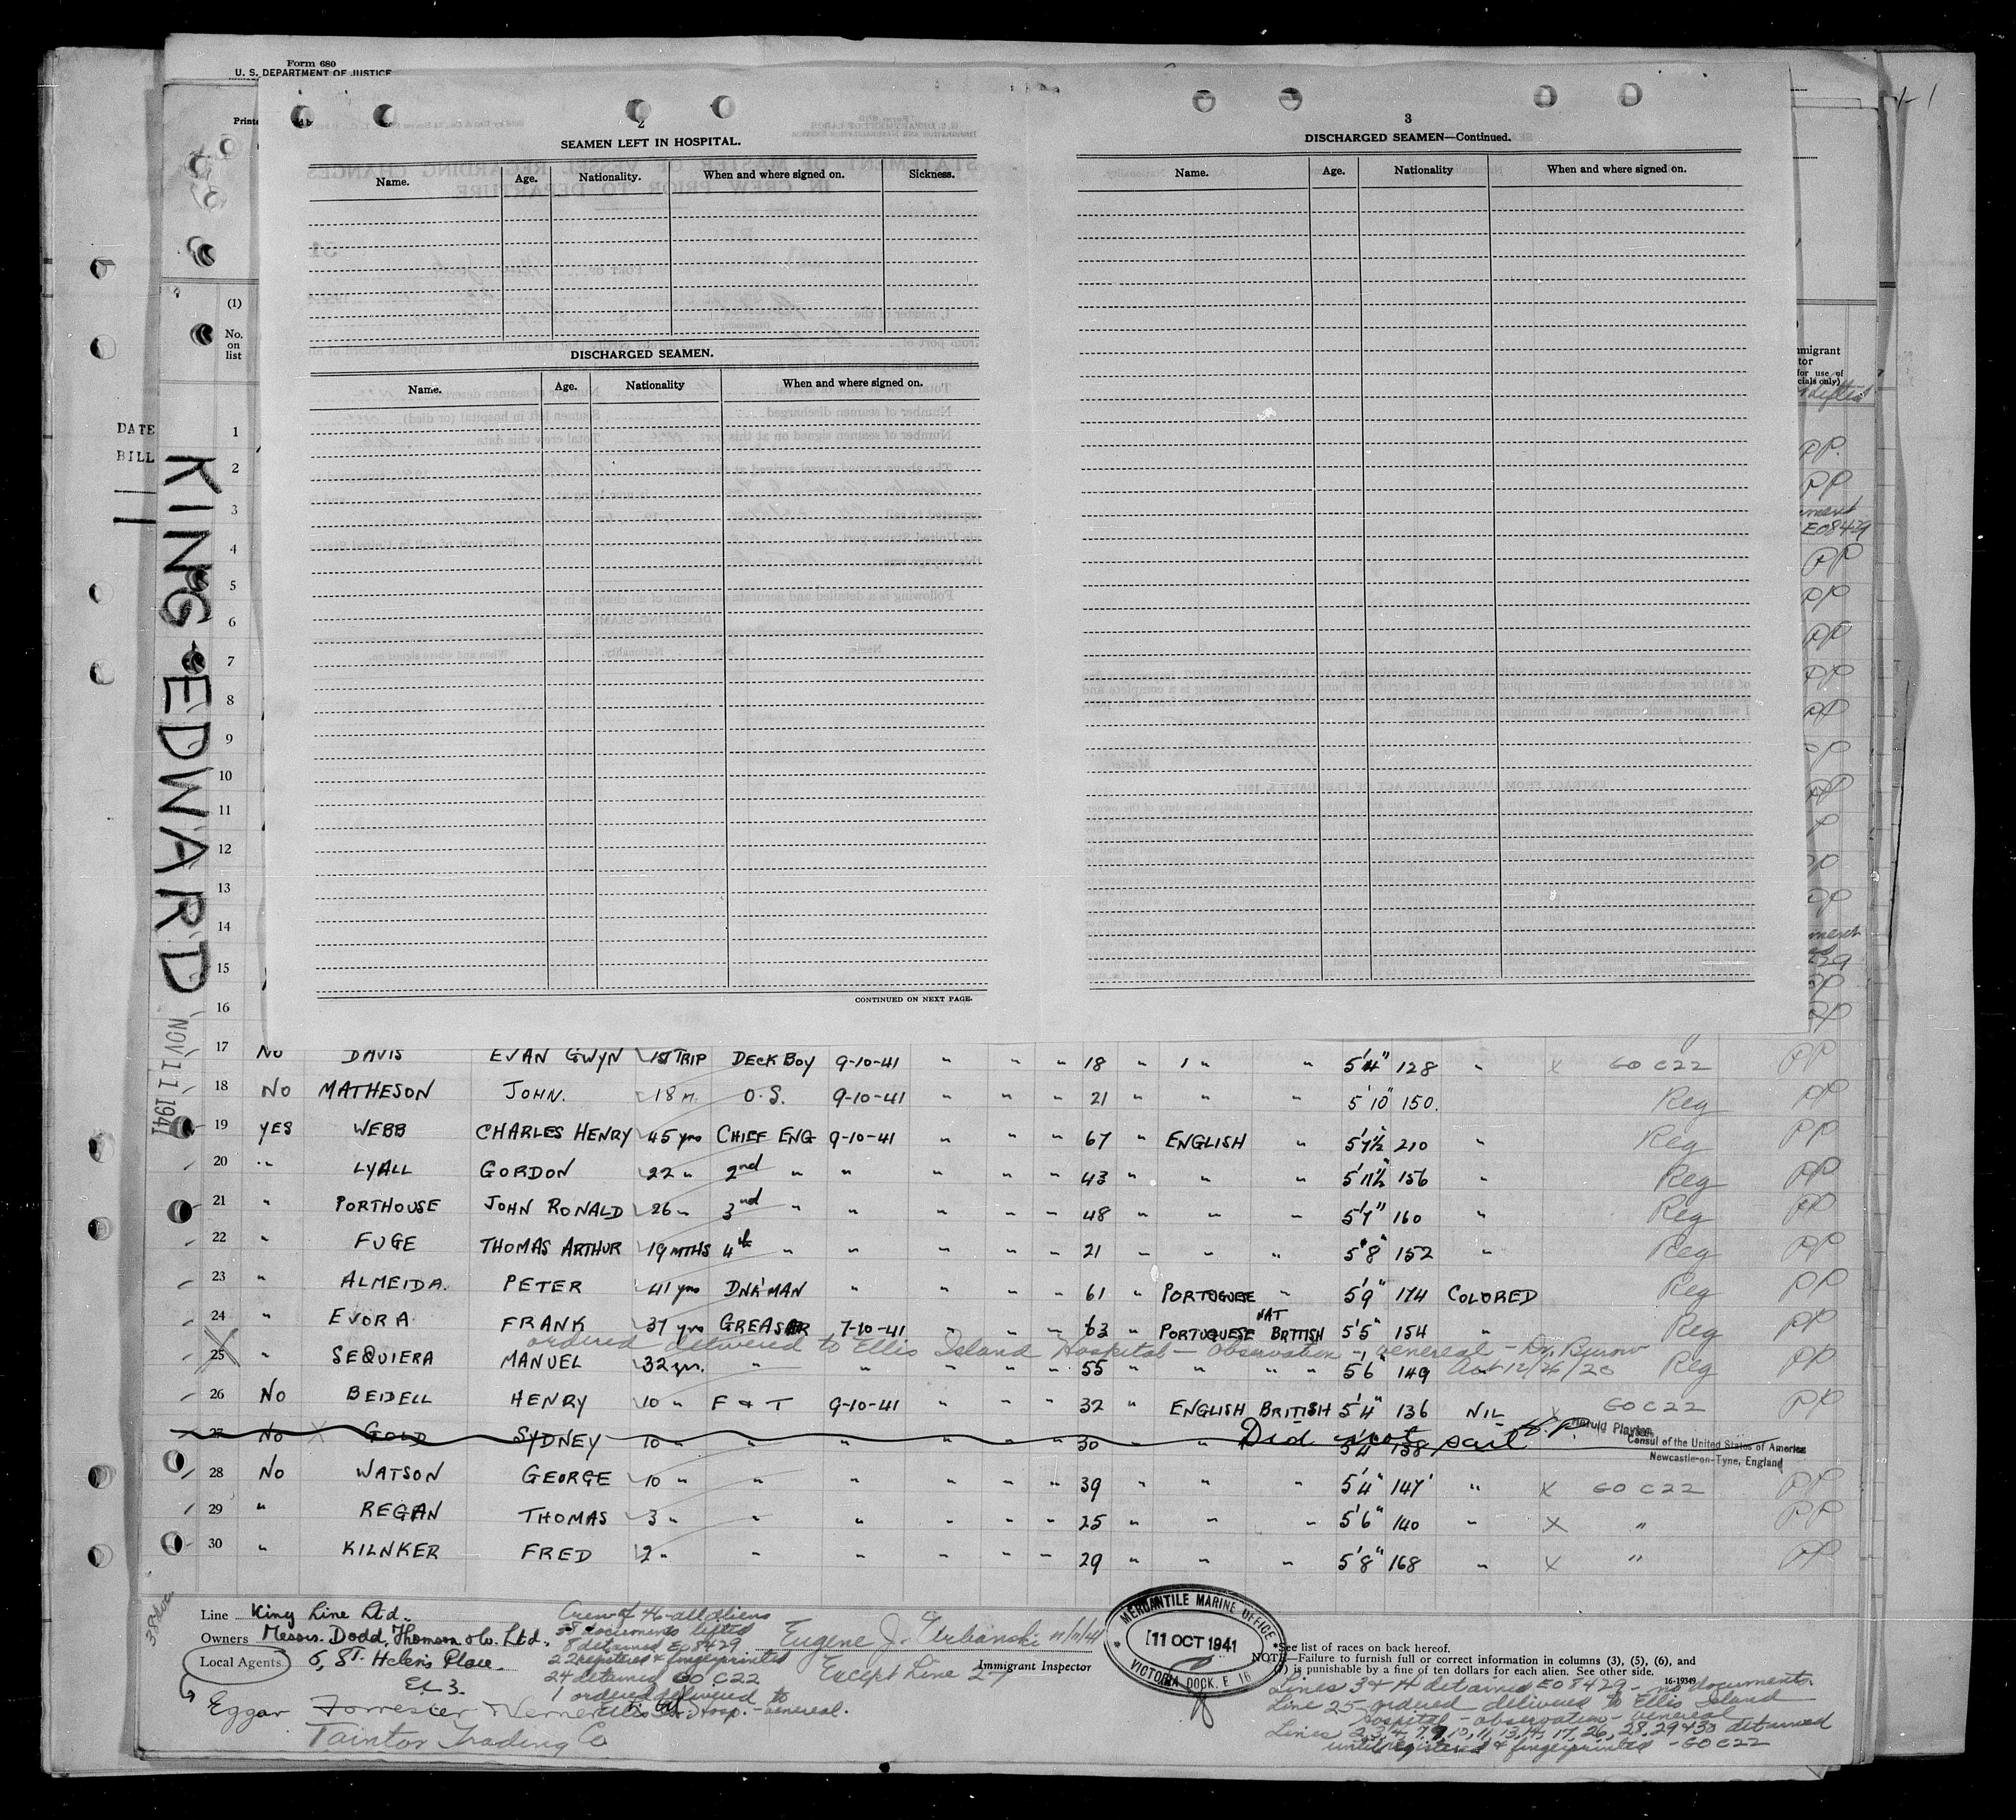 Form 680
U. S. DEPARTMENT OF JUSTICE
(1)
No. on list
DATE
BILL
KING EDWARD
NOV 11 1941
2
SEAMEN LEFT IN HOSPITAL.
Name. Age. Nationality. When and where signed on. Sickness.
DISCHARGED SEAMEN.
Name. Age. Nationality When and where signed on.
CONTINUED ON NEXT PAGE.
3
DISCHARGED SEAMEN—Continued.
Name. Age. Nationality When and where signed on.
1
2
3
4
5
6
7
8
9
10
11
12
13
14
15
16
17 No DAVIS EVAN GWYN 1ST TRIP DECK BOY 9-10-41 " " " 18 " " " 5'4" 128 " x GO C22 PP
18 No MATHESON JOHN. 18 m. O.S. 9-10-41 " " " 21 " " " 5'10" 150. Reg PP
19 YES WEBB CHARLES HENRY 45 yrs CHIEF ENG 9-10-41 " " " 67 " ENGLISH " 5'7½" 210 " Reg PP
20 " LYALL GORDON 22 " 2nd " " " " " 43 " " " 5'11½" 156 " Reg PP
21 " PORTHOUSE JOHN RONALD 26 " 3nd " " " " " 48 " " " 5'7" 160 " Reg PP
22 " FUGE THOMAS ARTHUR 19 MTHS 4th " " " " " 21 " " " 5'8" 152 " Reg PP
23 " ALMEIDA. PETER 41 yrs DNK'MAN " " " " 61 " PORTUGUESE " 5'9" 174 COLORED Reg PP
24 " EVORA FRANK 37 yrs GREASER 7-10-41 " " " 63 " PORTUGUESE NAT BRITISH 5'5" 154 " Reg PP
ordered delivered to Ellis Island Hospital - Observation - venereal - Dr. Burow
25 " SEQUIERA MANUEL 32 yrs. " " " " " 55 " " " 5'6" 149 Act 12/26/20 Reg PP
26 No BEIDELL HENRY 10 " F & T 9-10-41 " " " 32 " ENGLISH BRITISH 5'4" 136 NIL x GO C22 PP
27 No X GOLD SYDNEY 10 " " " " " " 30 " " Did not sail 5'4" 138
Consul of the United States of America
Newcastle-on-Tyne, England
28 No WATSON GEORGE 10 " " " " " " 39 " " " 5'4" 147 " x GO C22 PP
29 " REGAN THOMAS 3 " " " " " " 25 " " " 5'6" 140 " x " PP
30 " KILNKER FRED 2 " " " " " " 29 " " " 5'8" 168 " x " PP
Line King Line Ltd.
Owners Messrs. Dodd, Thomson & Co. Ltd.
Local Agents 6, St. Helen's Place.
E.C 3.
Eggar Forrester
Taintor Trading Co
Crew of 46 - all aliens
38 documents lifted
8 detained E08429
22 registered & fingerprinted
24 detained GO C22
1 ordered delivered to
Ellis Isl. Hosp. - venereal.
Eugene J. Urbanski 11/11/41
Immigrant Inspector
Except Line 27
MERCANTILE MARINE OFFICE
11 OCT 1941
VICTORIA DOCK. E 16
*See list of races on back hereof.
NOTE—Failure to furnish full or correct information in columns (3), (5), (6), and
(7) is punishable by a fine of ten dollars for each alien. See other side.
16-19349
Lines 3 & 14 detained E08429 - no documents.
Line 25 - ordered - delivered to Ellis Island
hospital - observation - venereal
Lines 2, 3, 4, 7, 9, 10, 11, 13, 14, 17, 26, 28, 29 & 30 detained
until registered & fingerprinted - GO C22